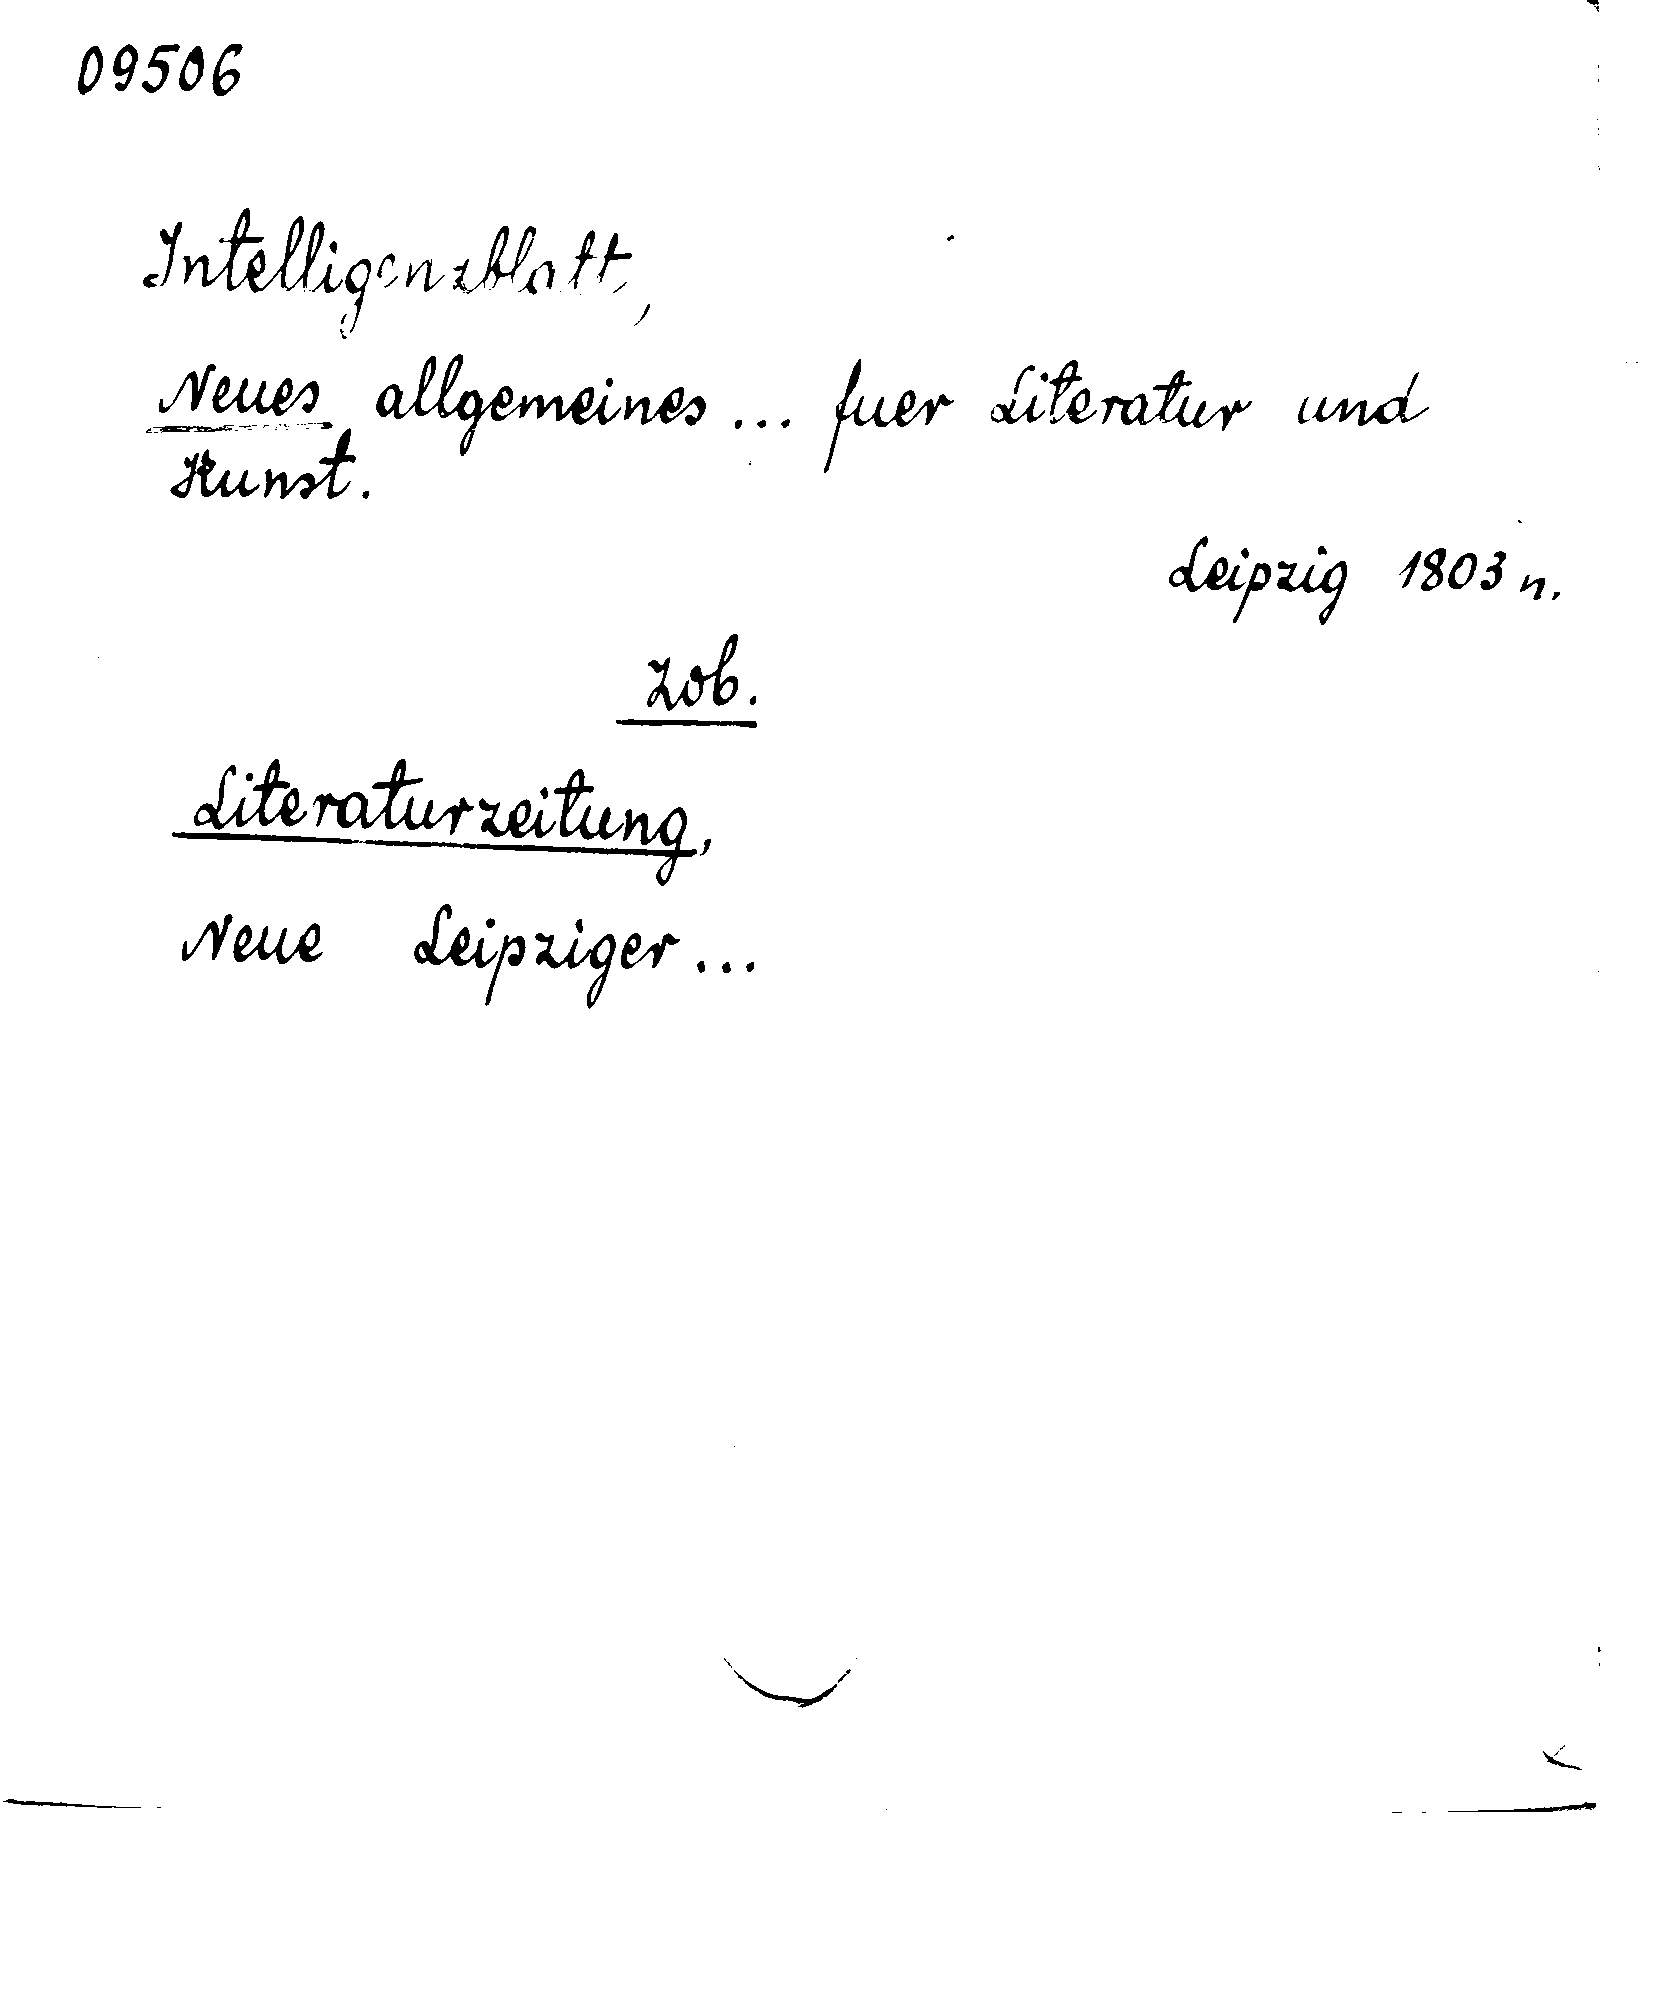 09506
Intelligenzblatt,
Neues allgemeines ... fuer Literatur und
Kunst.
Leipzig 1803 n.
Zob.
Literaturzeitung,
Neue Leipziger ...